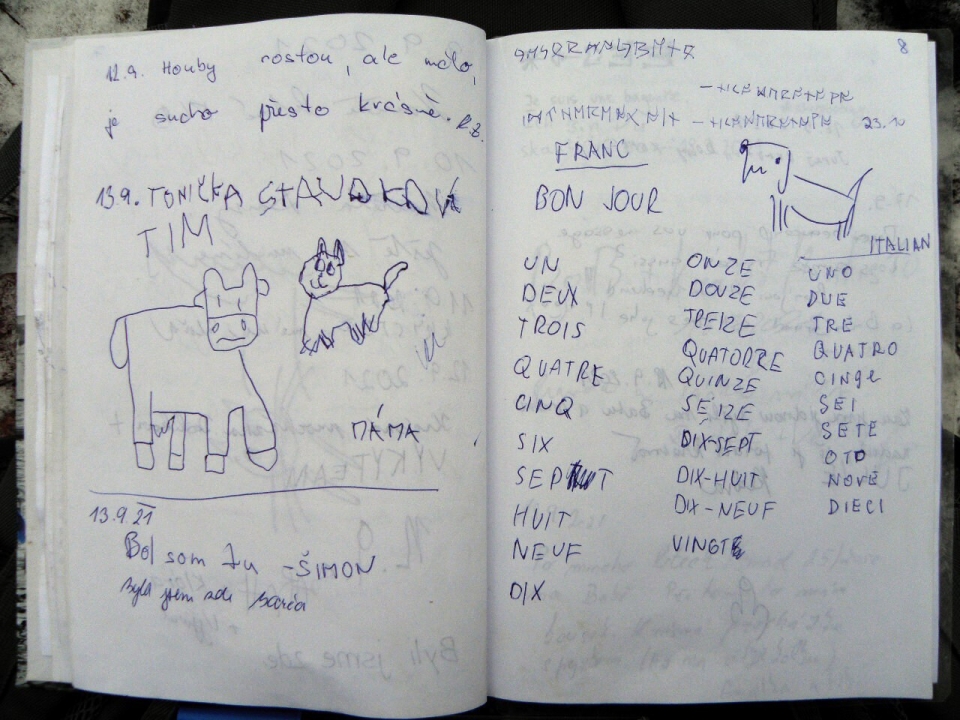 12.9. Houby rostou, ale málo,
je sucho přesto krásně. R.Z.
13.9. TONIČKA
TIM
MÁMA
13.9.21
Bol som tu - ŠIMON
Byla jsem zde
8
23.10
FRANC
BON JOUR
UN
DEUX
TROIS
QUATRE
CINQ
SIX
SEPT
HUIT
NEUF
DIX
ONZE
DOUZE
TREIZE
QUATORRE
QUINZE
SEIZE
DIX-SEPT
DIX-HUIT
DIX-NEUF
VINGT
ITALIAN
UNO
DUE
TRE
QUATRO
CINQE
SEI
SETE
OTO
NOVE
DIECI